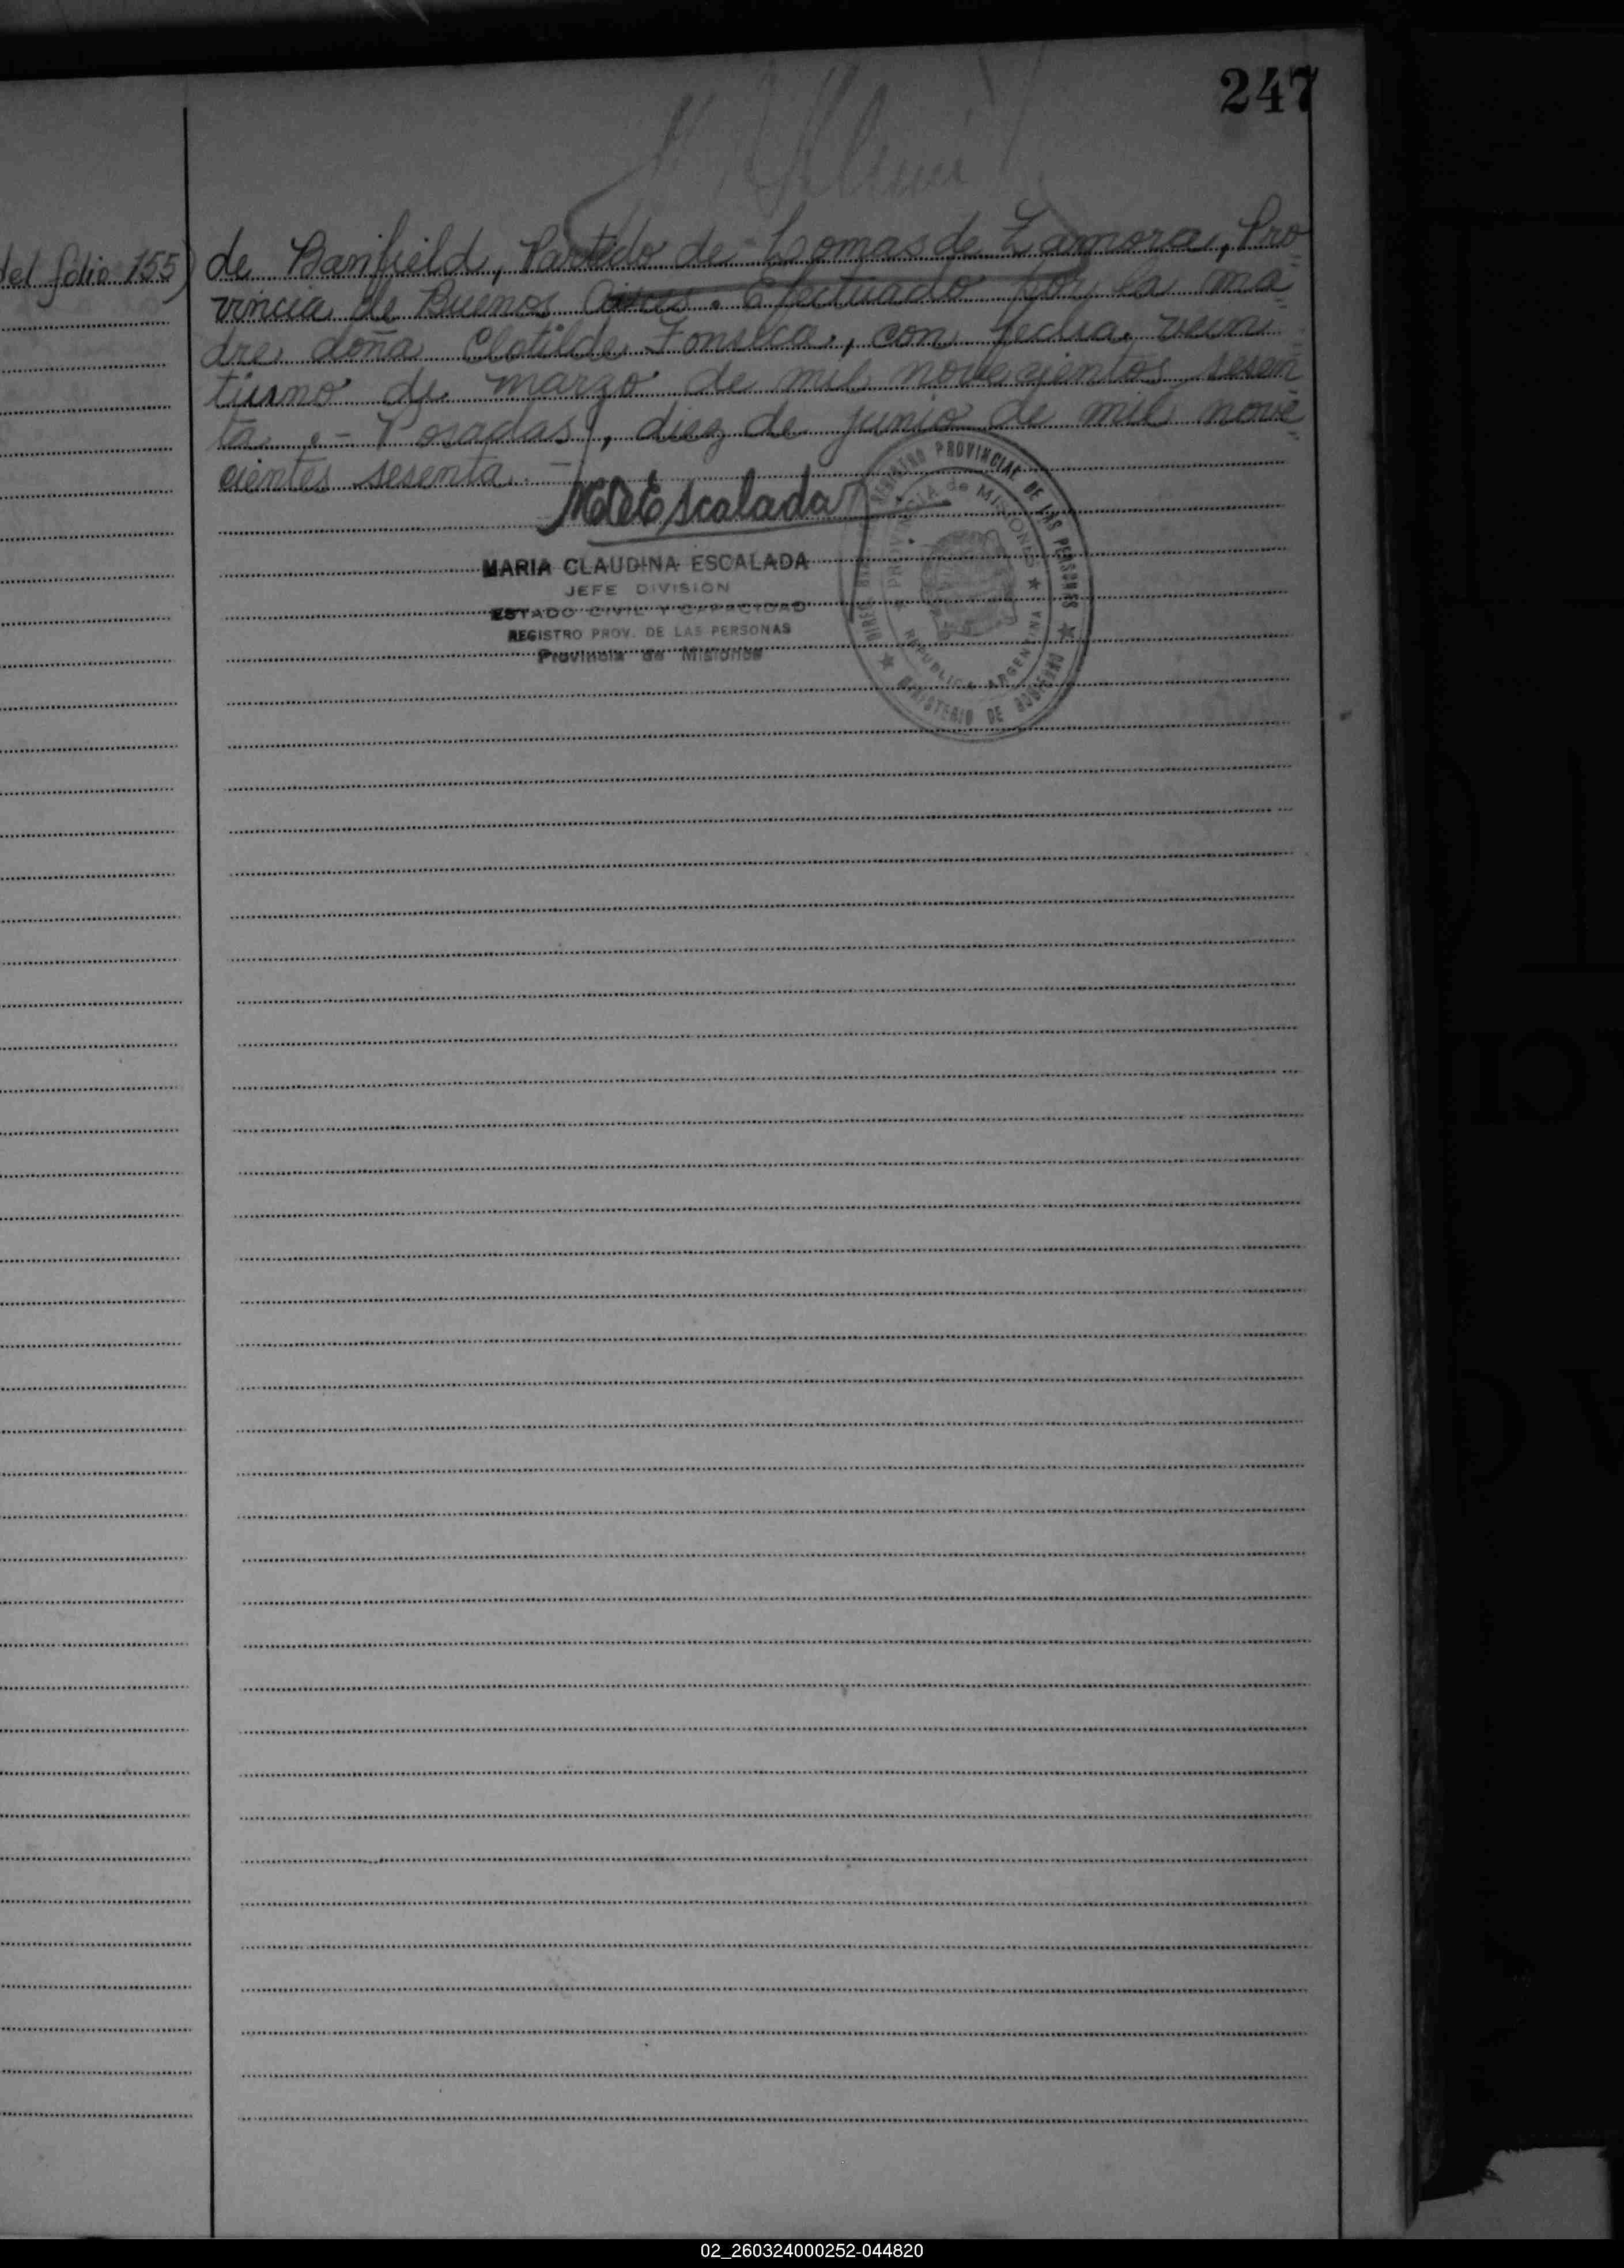 247
del folio 155)
de Banfield, Partido de Lomas de Zamora, Pro=
vincia de Buenos Aires. Efectuado por la ma=
dre doña Clotilde Fonseca, con fecha vein=
tiuno de marzo de mil novecientos sesen=
ta .- Posadas, diez de junio de mil nove=
cientos sesenta. -
MdeEscalada
MARIA CLAUDINA ESCALADA
JEFE DIVISION
ESTADO CIVIL Y CAPACIDAD
REGISTRO PROV. DE LAS PERSONAS
Provincia de Misiones
REGISTRO PROVINCIAL DE LAS PERSONAS
MINISTERIO DE GOBIERNO
PROVINCIA de MISIONES
REPUBLICA ARGENTINA
02_260324000252-044820